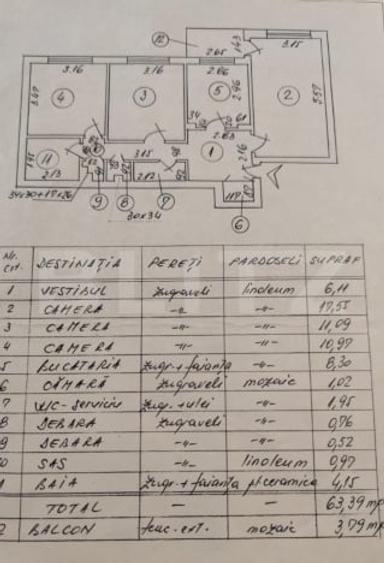 12
2.65
1.43
3.15
3.16
3.16
2.86
3.47
4
3
5
2.96
2
5.57
34
61
2.63
11
1.95
2.13
3.15
98
1
2.16
2.12
92
34x30+17x26
9
8
30x34
7
117
87
6
Nr. crt. DESTINAȚIA PEREȚI PARDOSELI SUPRAF
1 VESTIBUL zugraveli linoleum 6,11
2 CAMERA -"- -"- 17,55
3 CAMERA -"- -"- 11,09
4 CAMERA -"- -"- 10,97
5 BUCATARIA zugr.+faianța -"- 8,30
6 CĂMARĂ zugraveli mozaic 1,02
7 W/C-serviciu zugr.+ulei -"- 1,95
8 DEBARA zugraveli -"- 0,76
9 DEBARA -"- -"- 0,52
0 SAS -"- linoleum 0,97
1 BAIA zugr.+faianța pl.ceramica 4,15
TOTAL — — 63,39 mp
2 BALCON tenc.ext. mozaic 3,79 mp